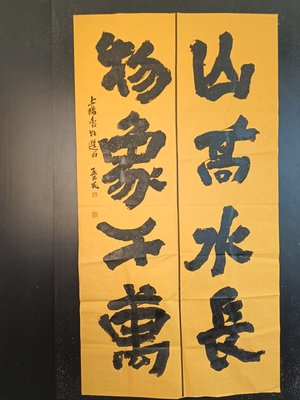 山高水長
物象千萬
上陽臺帖